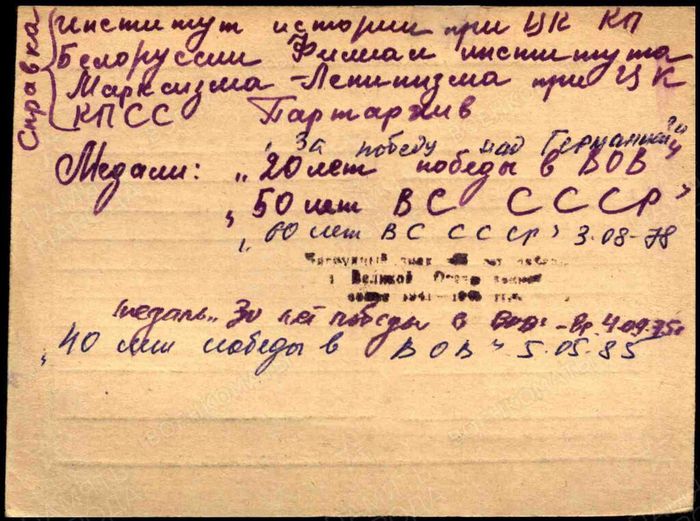 Справка
Институт истории при ЦК КП
Белоруссии Филиал института
Марксизма-Ленинизма при ЦК
КПСС Партархив
"За победу над Германией"
Медали: "20 лет победы в ВОВ"
"50 лет ВС СССР"
"60 лет ВС СССР" 3.08-78
Нагрудный знак лет
в Великой Отеч.
войне 1941-1945 гг.
медаль "30 лет победы в ВОВ" - Вр. 4.09.75г
"40 лет победы в ВОВ" 5.05.85